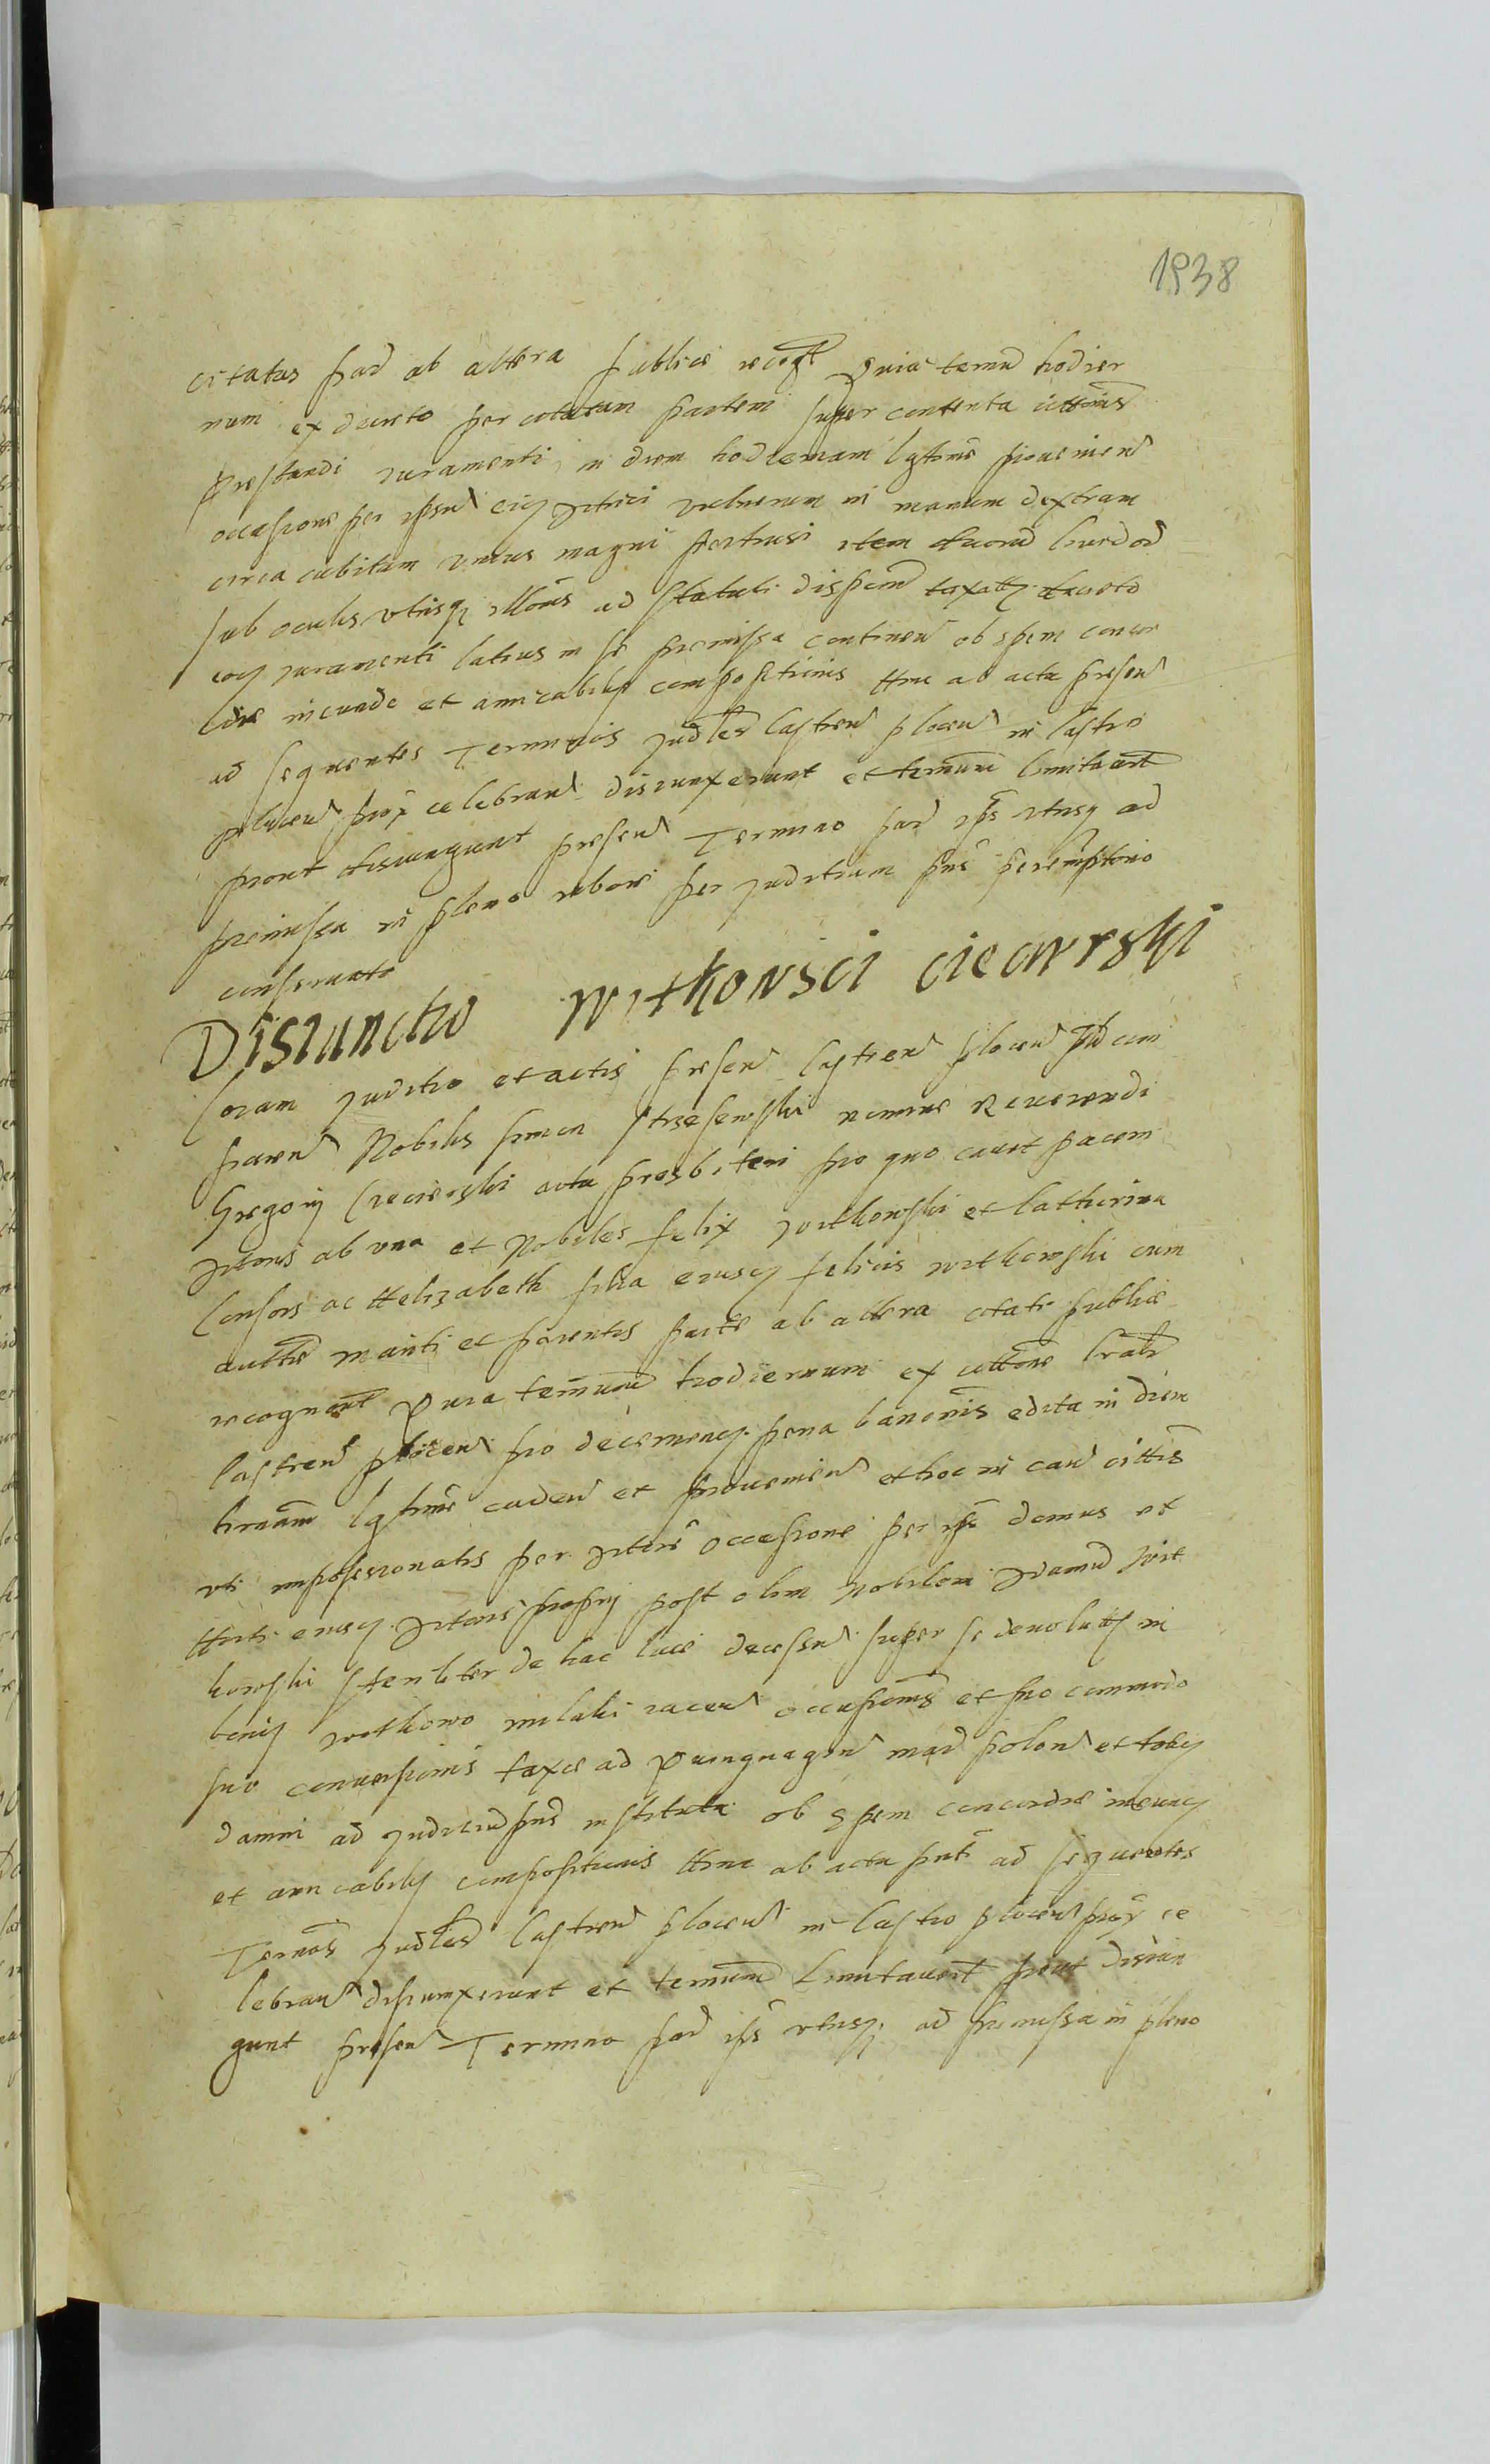 1938
citatus par ab altera publice recogt Quia termū hodier
num ex decreto per citatam partem super contenta cittōnis
prestandi iuramenti in diem hodiernam lgtime prouenien
occasione per ipsum eius Actrici vulnerum in manum dextram
circa cubitum vnius magni pertusi item duorū liuedorū
sub oculis vtrisq illōnis ad statuti dispōnem taxatis decreto
eoq iuramenti latius in se premissa continen ob spem concor
die ineunde et amicabilis compositionis Hinc ab acta presen
ad sequentes Terminos Judles Castren plocen in Castro
plocen prox celebran disiunxerunt et terminū limitauert
prout disiungunt presen Termino par ips vtrisq ad
premissa in pleno robore per Juditium pns peremptorio
conseruato
Disiunctio Witkowsci ciecierski
Coram Juditio et actis presen Castren plocen ptib com
paren Nobilis simon strzesewski nomine Reuerendi
Gregorij Cieciersky acta presbiteri pro quo cauit pacem
Actoris ab vna et Nobiles felix Witkowski et Catherina
Consors ac Helizabeth filia eiusq felicis witkowski cum
auttē mariti et parentis parte ab altera citati publice
recognōnt Quia terminū hodiernum ex cittōne
Castren plocen pro decernenq pena banōnis edita in diem
lgtime caden et prouenien et hoc in cau cittis
vti impossessionatis per Actore occasione per ips domus et
eiusq Actoris proprij post olim Nobilem Adamū Wit
kowski steriliter de hac luce decessū super se deuolutis in
bonis witkowo iacen occasionis et pro commodo
suo conuersionis taxe ad Quinquagin mar polon et totiq
damni ad Juditiū pns instituta ob spem concordie ineunq
et amicabilis compositionis Hinc ab acta pnti ad sequentes
Terminos Judles Castren plocen in Castro plocen prox ce
lebran disiunxerunt et terminum limitauert prout disiun
gunt presen Termino par ips vtrisq ad premissa in pleno